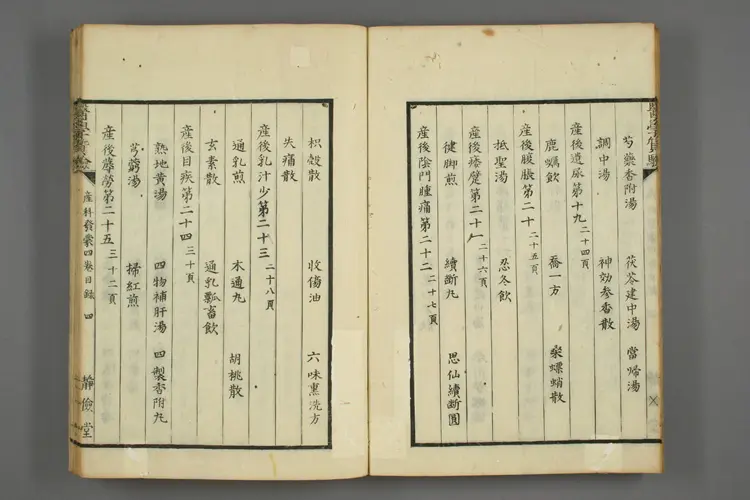 芍藥香附湯 茯苓建中湯 當帰湯
調中湯 神効参香散
產後遺尿第十九 二十四頁
鹿蠣飲 喬一方 桑螵蛸散
產後腹脹第二十 二十五頁
抵聖湯 忍冬飲
產後痿躄第二十一 二十六頁
健脚煎 續断丸 思仙續断圓
產後陰門腫痛第二十二 二十七頁
枳殻散 收傷油 六味熏洗方
失痛散
產後乳汁少第二十三 二十八頁
通乳煎 木通丸 胡桃散
玄素散 通乳瓢畜飲
產後目疾第二十四 三十頁
熟地黄湯 四物補肝湯 四製香附丸
芎藭湯 掃紅煎
產後蓐勞第二十五 三十二頁
產科發蒙四卷目録 四 靜儉堂